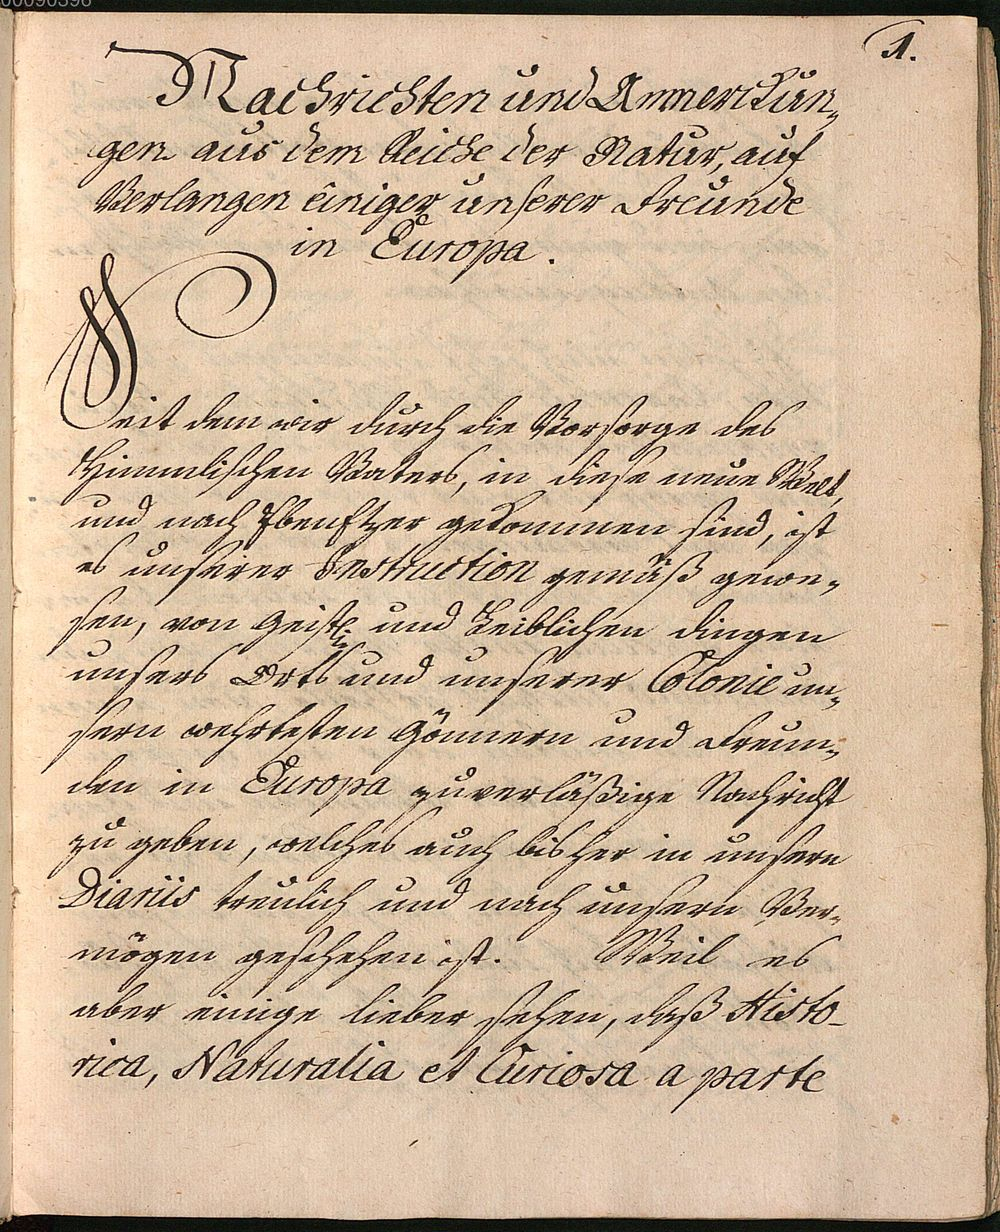 00090398
1.
Nachrichten und Anmerckun„
gen aus dem Reiche der Natur, auf
Verlangen einiger unserer Freunde
in Europa.
Seit dem wir durch die Vorsorge des
Himmlischen Vaters, in diese neue Welt,
und nach Ebenezer gekommen sind, ist
es unserer Instruction gemäß gewe„
sen, von Geistl. und Leiblichen dingen
unsers Orts und unserer Colonie un„
sern wehrtesten Gönnern und Freun„
den in Europa zuverläßige Nachricht
zu geben, welches auch bisher in unsern
Diariis treulich und nach unsern Ver„
mögen geschehen ist. Weil es
aber einige lieber sehen, daß Histo-
rica, Naturalia et Curiosa a parte